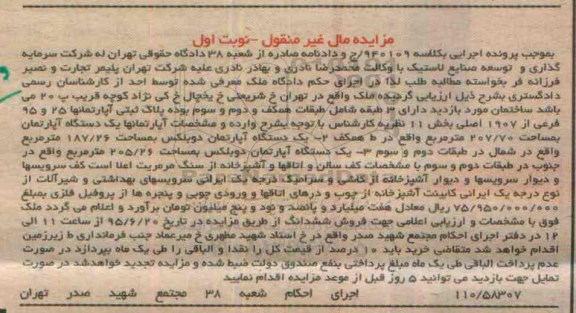 مزایده مال غیر منقول -نوبت اول
بموجب پرونده اجرایی بکلاسه ۹۴۰۱۰۹/ج و دادنامه صادره از شعبه ۳۸ دادگاه حقوقی تهران له شرکت سرمایه
گذاری و توسعه صنایع لاستیک با وکالت محمدرضا نادری و بهادر نادری علیه شرکت تهران پلیمر تجارت و نصیر
فرزانه فر بخواسته مطالبه طلب لذا در اجرای حکم دادگاه ملک معرفی شده توسط احد از کارشناسان رسمی
دادگستری بشرح ذیل ارزیابی گردیده ملک واقع در تهران خ شریعتی خ یخچال خ کی نژاد کوچه قریب پ ۲۰ می
باشد ساختمان مورد بازدید دارای ۳ طبقه شامل طبقات همکف و دوم و سوم بوده پلاک ثبتی آپارتمانها ۲۵ و ۹۵
فرعی از ۷۹۰۷ اصلی بخش ۱۱ نظریه کارشناس با توجه بشرح وارده و مشخصات آپارتمانها یک دستگاه آپارتمان
بمساحت ۲۰۷/۷۰ مترمربع واقع در ط همکف ۲- یک دستگاه آپارتمان دوبلکس بمساحت ۱۸۷/۲۶ مترمربع
واقع در شمال در طبقات دوم و سوم ۳- یک دستگاه آپارتمان دوبلکس بمساحت ۲۰۵/۲۶ مترمربع واقع در
جنوب در طبقات دوم و سوم با مشخصات کف سالن و اتاقها و آشپزخانه از سنگ مرمریت اعلا است کف سرویسها
و دیوار سرویسها و دیوار آشپزخانه از کاشی و سرامیک درجه یک ایرانی سرویسهای بهداشتی و شیرآلات از
نوع درجه یک ایرانی کابینت آشپزخانه از چوب و درهای اتاقها و ورودی چوبی و پنجره ها از پروفیل فلزی بمبلغ
۷۵/۹۵۰/۰۰۰/۰۰۰ ریال معادل هفت میلیارد و پانصد و نود و پنج میلیون تومان برآورد و اعلام می گردد ملک
فوق با مشخصات و ارزیابی اعلامی جهت فروش ششدانگ از طریق مزایده در تاریخ ۹۵/۶/۲۰ از ساعت ۱۱ الی
۱۲ در دفتر اجرای احکام مجتمع شهید صدر واقع در خ استاد شهید مطهری خ میرعماد جنب فرمانداری ط زیرزمین
اقدام خواهد شد متقاضی خرید باید ۱۰ درصد از قیمت کل را نقدا و الباقی را طی یک ماه بپردازد در صورت
عدم پرداخت الباقی طی یک ماه مبلغ پرداختی بنفع صندوق دولت ضبط شده و مزایده تجدید خواهدشد در صورت
تمایل جهت بازدید می توانید ۵ روز قبل از موعد مزایده اقدام نمایید
۱۱۰/۵۸۳۰۷ اجرای احکام شعبه ۳۸ مجتمع شهید صدر تهران